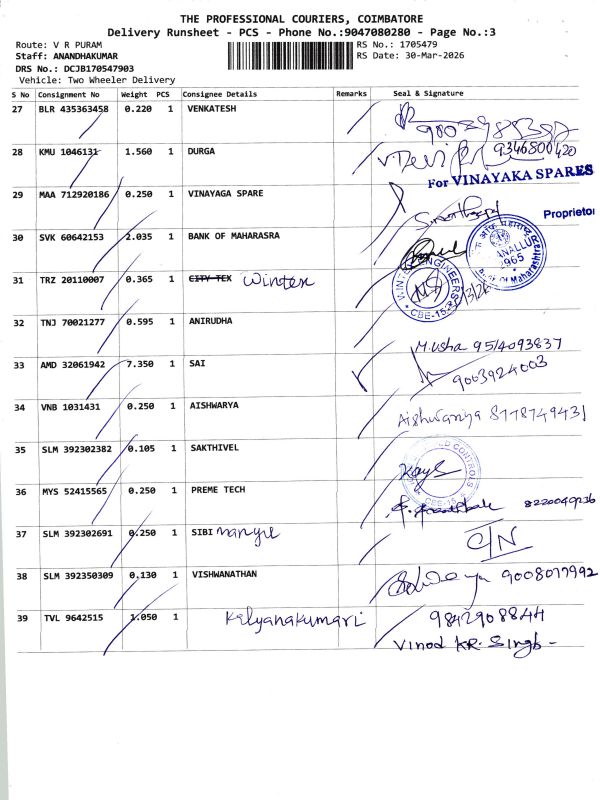 THE PROFESSIONAL COURIERS, COIMBATORE
Delivery Runsheet - PCS - Phone No.:9047080280 - Page No.:3
Route: V R PURAM
RS No.: 1705479
Staff: ANANDHAKUMAR
RS Date: 30-Mar-2026
DRS No.: DCJB170547903
Vehicle: Two Wheeler Delivery
S No Consignment No Weight PCS Consignee Details Remarks Seal & Signature
27 BLR 435363458 0.220 1 VENKATESH
28 KMU 1046131 1.560 1 DURGA V.Devi 9346800420
For VINAYAKA SPARES
29 MAA 712920186 0.250 1 VINAYAGA SPARE
Proprietor
30 SVK 60642153 2.035 1 BANK OF MAHARASRA
31 TRZ 20110007 0.365 1 CITY TEX Winten
32 TNJ 70021277 0.595 1 ANIRUDHA
M.usha 9514093837
33 AMD 32061942 7.350 1 SAI
9003924003
34 VNB 1031431 0.250 1 AISHWARYA Aishwarya 8778749431
35 SLM 392302382 0.105 1 SAKTHIVEL
36 MYS 52415565 0.250 1 PREME TECH 8220049136
37 SLM 392302691 0.250 1 SIBI C/N
38 SLM 392350309 0.130 1 VISHWANATHAN 9008077992
39 TVL 9642515 1.050 1 Kalyanakumari 9842908844
Vinod KR. Singh -